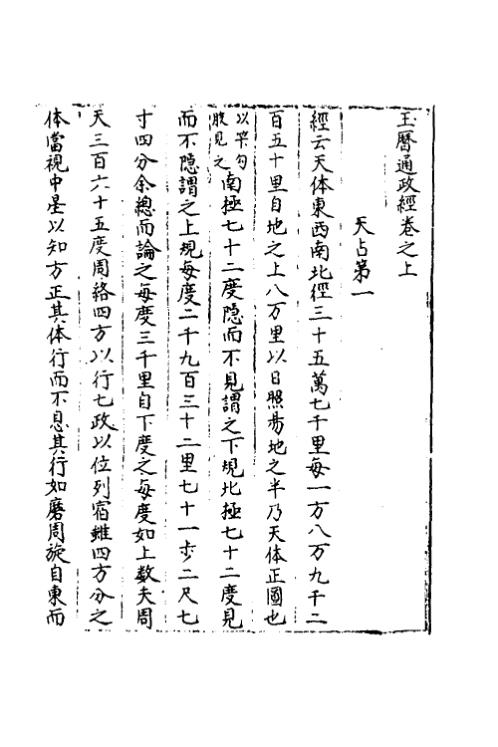 玉曆通政經卷之上
天占第一
經云天体東西南北徑三十五萬七千里每一方八万九千二
百五十里自地之上八万里以日照昜地之半乃天体正圓也
以筭勾
股見之
南極七十二度隐而不見謂之下規北極七十二度見
而不隐謂之上規每度二千九百三十二里七十一步二尺七
寸四分余總而論之每度三千里自下度之每度如上数夫周
天三百六十五度周絡四方以行七政以位列宿雖四方分之
体當視中星以知方正其体行而不息其行如磨周旋自東而